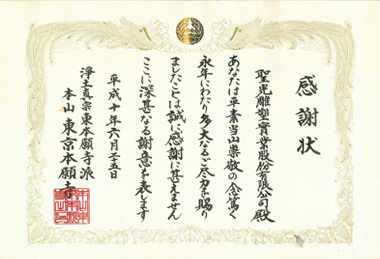 感謝状
聖光雕塑實業股份有限公司殿
あなたは平素当山崇敬の念篤く
永年にわたり多大なるご尽力を賜り
ましたことは誠に感謝に甚えません
ここに深甚なる謝意を表します
平成十年六月二十五日
浄土真宗東本願寺派
本山東京本願寺